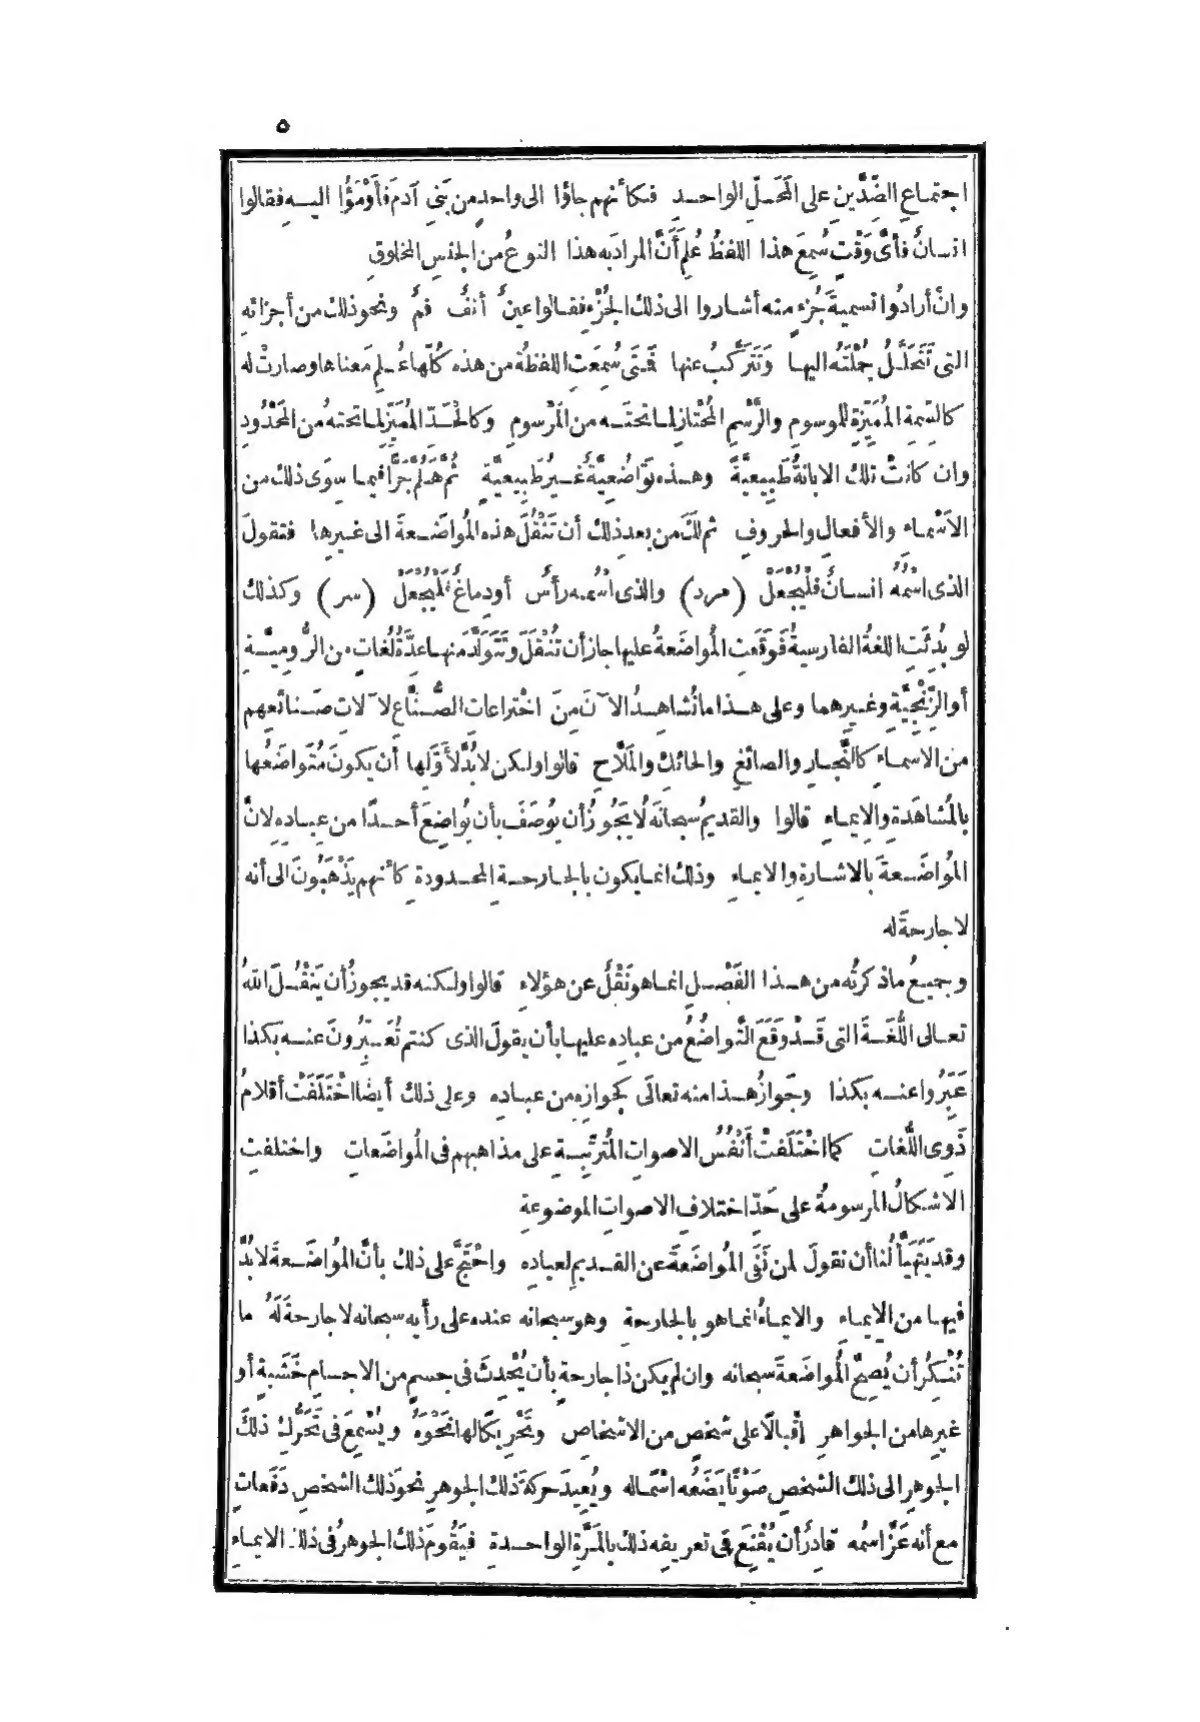 ٥
اجتماعِ الضِّدَّينِ على المَحَلِّ الواحدِ فكأنهم جاؤا الى واحدٍ من بَنِي آدمَ فأَوْمَؤُا اليه فقالوا
انسانٌ فأىَّ وَقْتٍ سُمِعَ هذا اللفظُ عُلِمَ أَنَّ المرادَ به هذا النوعُ من الجنسِ المخلوقِ
وانْ أرادُوا تسميةَ جُزءٍ منه أشاروا الى ذلك الجُزْءِ فقالوا عينٌ أنفٌ فمٌ ونحو ذلك من أجزائه
التى تَتَحَلَّلُ جُمْلَتُه اليها وَتَتَرَكَّبُ عنها فَمَتَى سُمِعَتِ اللفظةُ من هذه كُلِّها عُلِم مَعناها وصارتْ له
كالسِّمةِ المُمَيِّزةِ للموسومِ والرَّسْمِ المُخْتازِ لما تحتَه من المَرْسومِ وكالحَدّ المُمَيِّزِ لما تحته من المَحْدُودِ
وان كانتْ تلك الابانةُ طَبِيعيَّةً وهذه تَوَاضُعيَّةً غَيرُ طَبِيعيَّةٍ ثُمَّ هَلُمَّ جَرًّا فيما سِوَى ذلك من
الأَسْماءِ والأفعالِ والحروفِ ثم لَكَ من بعدِ ذلك أن تَنْقُلَ هذه المُواضَعةَ الى غيرِها فتقولَ
الذى اسْمُهُ انسانٌ فَلْيُجْعَلْ (مرد) والذى اسْمُه رأسٌ أو دِماغٌ فَلْيُجْعَلْ (سر) وكذلك
لو بُدِئَتِ اللغةُ الفارسيةُ فَوَقَعَتِ المُواضَعةُ عليها جاز أن تُنْقَلَ وتَتَوَلَّدَ منها عدَّةُ لُغاتٍ من الرُّومِيَّةِ
أو الزِّنْجِيَّةِ وغيرِهما وعلى هذا ما نُشاهِدُ الآنَ مِنَ اخْتراعاتِ الصُّنَّاعِ لآلاتِ صَنائعِهِم
من الاسماءِ كالنَّجارِ والصائغِ والحائكِ والمَلَّاحِ قالوا ولكن لا بُدَّ لأَوَّلِها أن يكونَ مُتَواضَعُها
بالمُشاهَدةِ والإيماءِ قالوا والقديمُ سبحانَه لا يَجُوزُ أن يُوصَفَ بأن يُواضِعَ أحدًا من عِبادِه لِانَّ
المُواضَعةَ بالاشارةِ والايماءِ وذلك انما يكون بالجارحةِ المحدودةِ كأنهم يَذْهَبُونَ الى أنه
لا جارحةَ له
وجميعُ ما ذكرتُه من هذا الفَصْلِ انما هو نَقْلٌ عن هؤلاءِ قالوا ولكنه قد يجوزُ أن يَنْقُلَ اللهُ
تعالى اللُّغَةَ التى قَدْ وَقَعَ التَّواضُعُ من عبادِه عليها بأن يقولَ الذى كنتم تُعَبِّرُونَ عنه بكذا
عَبِّرُوا عنه بكذا وجَوازُ هذا منه تعالَى كجوازِهِ من عبادِه وعلى ذلك أيضًا اخْتَلَفَتْ أقلامُ
ذَوِى اللُّغاتِ كما اخْتَلَفتْ أَنْفُسُ الاصواتِ المُتَرَتِّبةِ على مذاهبِهم فى المُواضَعاتِ واختلفتِ
الاشكالُ المرسومةُ على حَدّ اختلافِ الاصواتِ الموضوعةِ
وقد يَتَهَيَّأُ لنا أن نقولَ لمن نَفَى المُواضَعَةَ عن القديمِ لعبادِه واحْتَجَّ على ذلك بأنَّ المُواضَعةَ لا بُدَّ
فيها من الإيماءِ والايماءُ انما هو بالجارحةِ وهو سبحانه عنده على رأيه سبحانه لا جارحةَ لَهُ ما
تُنْكِرُ أن يُصِحَّ المُواضَعةَ سبحانه وان لم يكن ذا جارحةٍ بأن يُحْدِثَ فى جسمٍ من الاجسامِ خَشَبةٍ أو
غيرِها من الجواهرِ إقْبالًا على شخصٍ من الاشخاصِ وتَحْرِيكًا لها نَحْوَهُ ويُسْمِعَ فى تَحَرُّكِ ذلكَ
الجوهرِ الى ذلك الشخصِ صَوْتًا يَضَعُه اسْمًا له ويُعِيدَ حركةَ ذلك الجوهرِ نحوَ ذلك الشخصِ دَفَعاتٍ
مع أنه عَزَّ اسمُه قادرٌ أن يُقْنِعَ فى تعريفِه ذلك بالمَرَّةِ الواحدةِ فيَقُومَ ذلك الجوهرُ فى ذلك الايماءِ